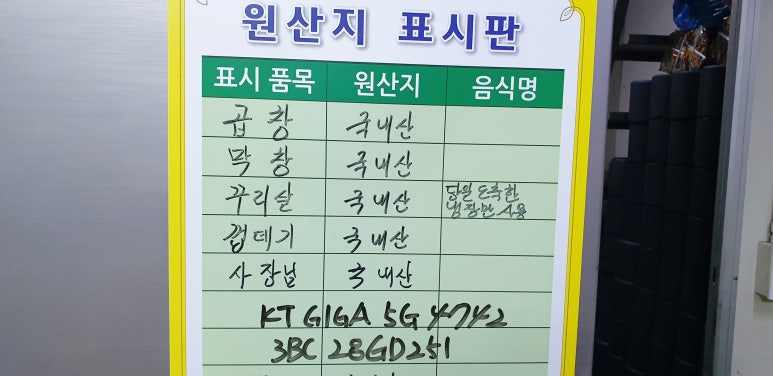 원산지 표시판
표시 품목 원산지 음식명
곱창 국내산
막창 국내산
꾸리살 국내산 당일 도축한
냉장만 사용
껍데기 국내산
사장님 국내산
KT GIGA 5G 4742
3BC 28GD251